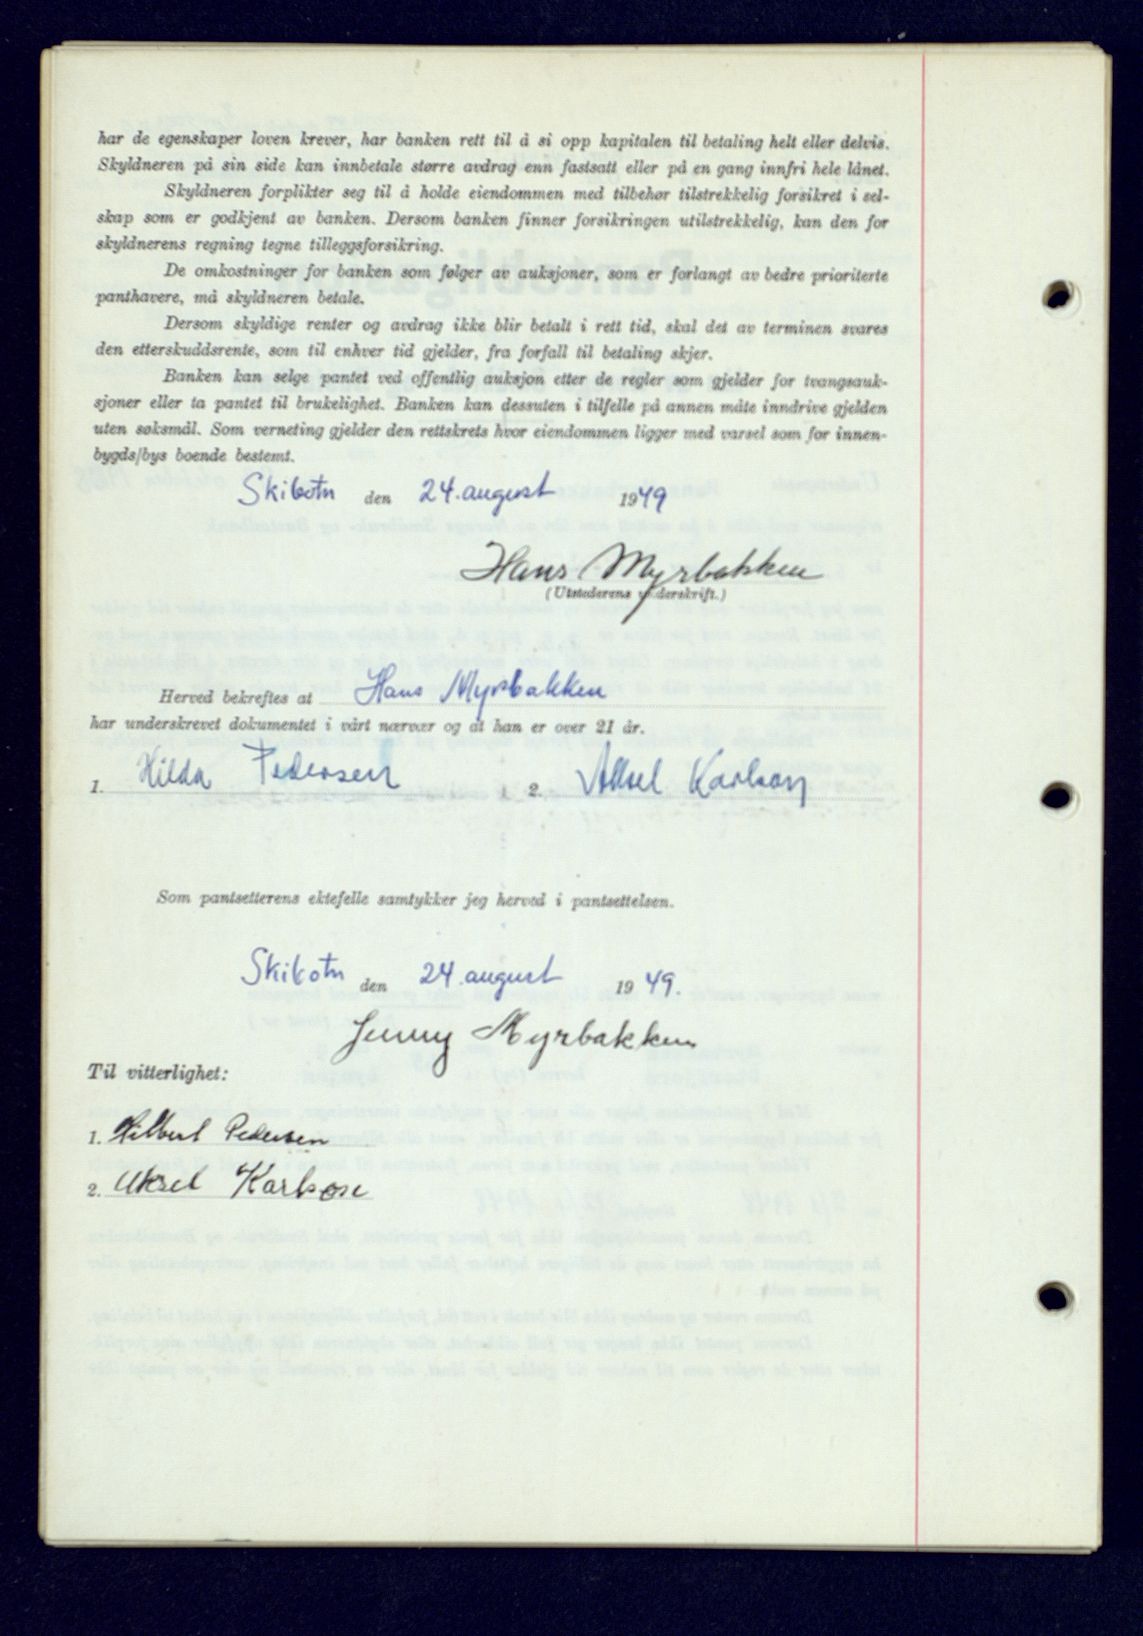 har de egenskaper loven krever, har banken rett til å si opp kapitalen til betaling helt eller delvis.
Skyldneren på sin side kan innbetale større avdrag enn fastsatt eller på en gang innfri hele lånet.
Skyldneren forplikter seg til å holde eiendommen med tilbehør tilstrekkelig forsikret i sel-
skap som er godkjent av banken. Dersom banken finner forsikringen utilstrekkelig, kan den for
skyldnerens regning tegne tilleggsforsikring.
De omkostninger for banken som følger av auksjoner, som er forlangt av bedre prioriterte
panthavere, må skyldneren betale.
Dersom skyldige renter og avdrag ikke blir betalt i rett tid, skal det av terminen svares
den etterskuddsrente, som til enhver tid gjelder, fra forfall til betaling skjer.
Banken kan selge pantet ved offentlig auksjon etter de regler som gjelder for tvangsauk-
sjoner eller ta pantet til brukelighet. Banken kan dessuten i tilfelle på annen måte inndrive gjelden
uten søksmål. Som verneting gjelder den rettskrets hvor eiendommen ligger med varsel som for innen-
bygds/bys boende bestemt.
Skibotn den 24. august 1949
Hans Myrbakken
(Utstederens underskrift.)
Herved bekreftes at Hans Myrbakken
har underskrevet dokumentet i vårt nærvær og at han er over 21 år.
1. Hilda Pedersen 2. Aksel Karlsen
Som pantsetterens ektefelle samtykker jeg herved i pantsettelsen.
Skibotn den 24. august 1949.
Jenny Myrbakken
Til vitterlighet:
1. Pedersen
2. Aksel Karlsen